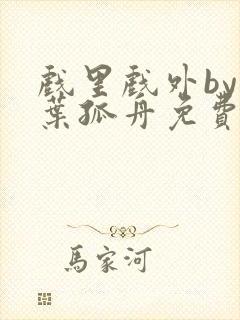 戲里戲外by
葉孤舟免費
馬家河